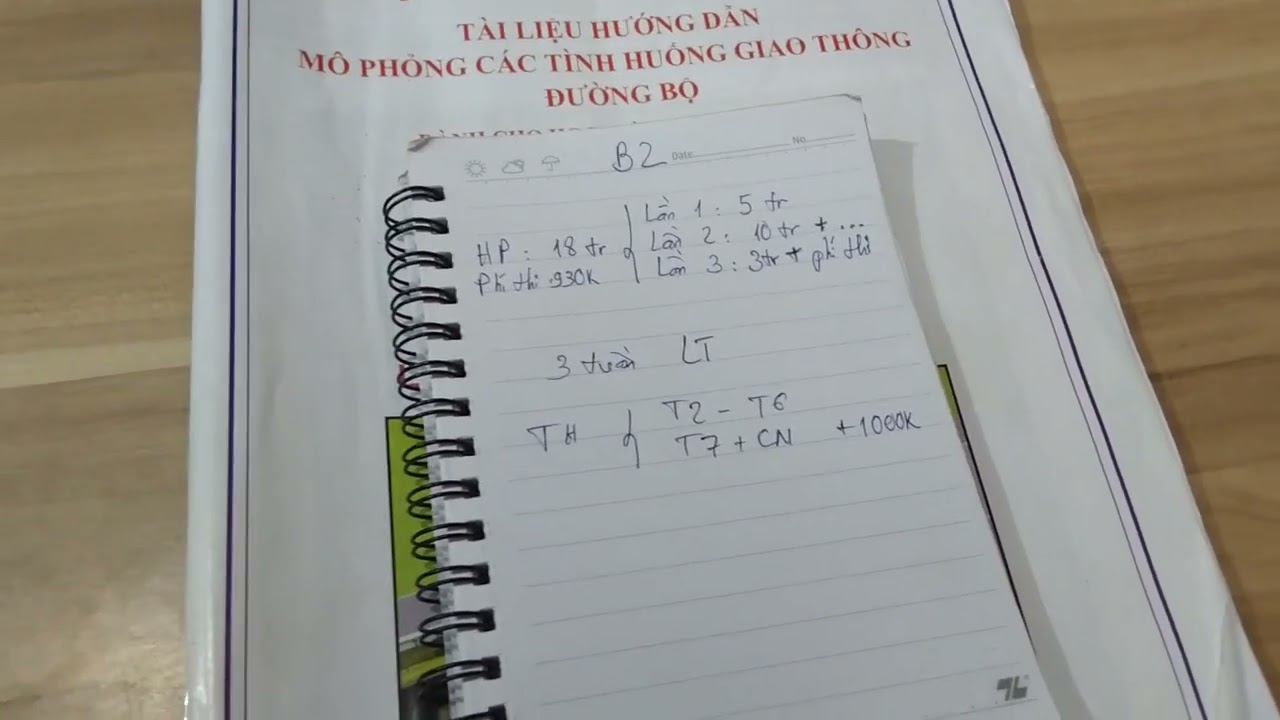 TÀI LIỆU HƯỚNG DẪN
MÔ PHỎNG CÁC TÌNH HUỐNG GIAO THÔNG
ĐƯỜNG BỘ
B2 Date No
HP : 18 tr
Phí thi : 930K
Lần 1 : 5 tr
Lần 2 : 10 tr + ...
Lần 3 : 3tr + phí thi
3 tuần LT
TH
T2 - T6
T7 + CN +1000K